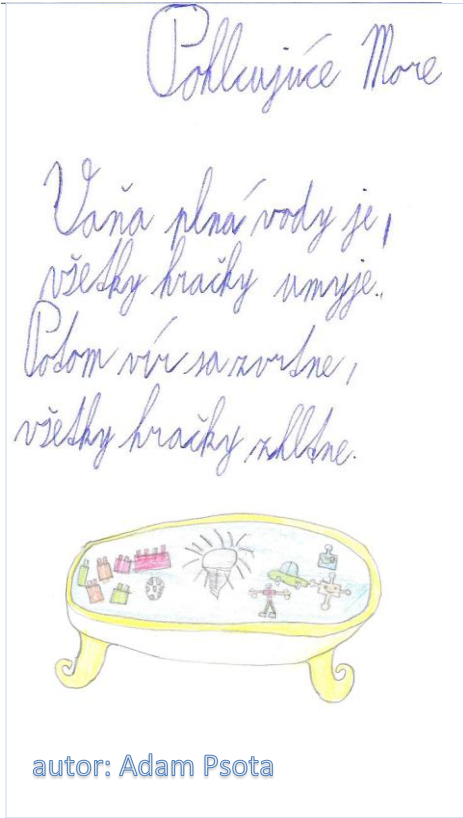 Pohlcujúce More
Vaňa plná vody je,
všetky hračky umyje.
Potom vír sa zvrtne,
všetky hračky zhltne.
autor: Adam Psota